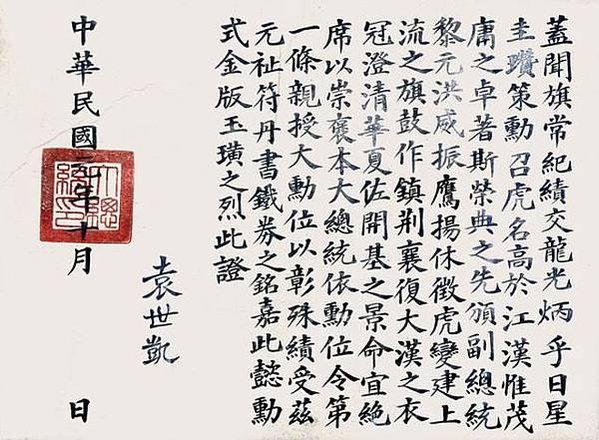 蓋聞旗常紀績交龍光炳乎日星
圭瓚策勳召虎名高於江漢惟茂
庸之卓著斯榮典之先頒副總統
黎元洪威振鷹揚休徵虎變建上
流之旗鼓作鎮荊襄復大漢之衣
冠澄清華夏佐開基之景命宜絶
席以崇褒本大總統依勳位令第
一條親授大勳位以彰殊績受茲
元祉符丹書鐵券之銘嘉此懿勳
式金版玉璜之烈此證
袁世凱
中華民國年十月 日
大總統印